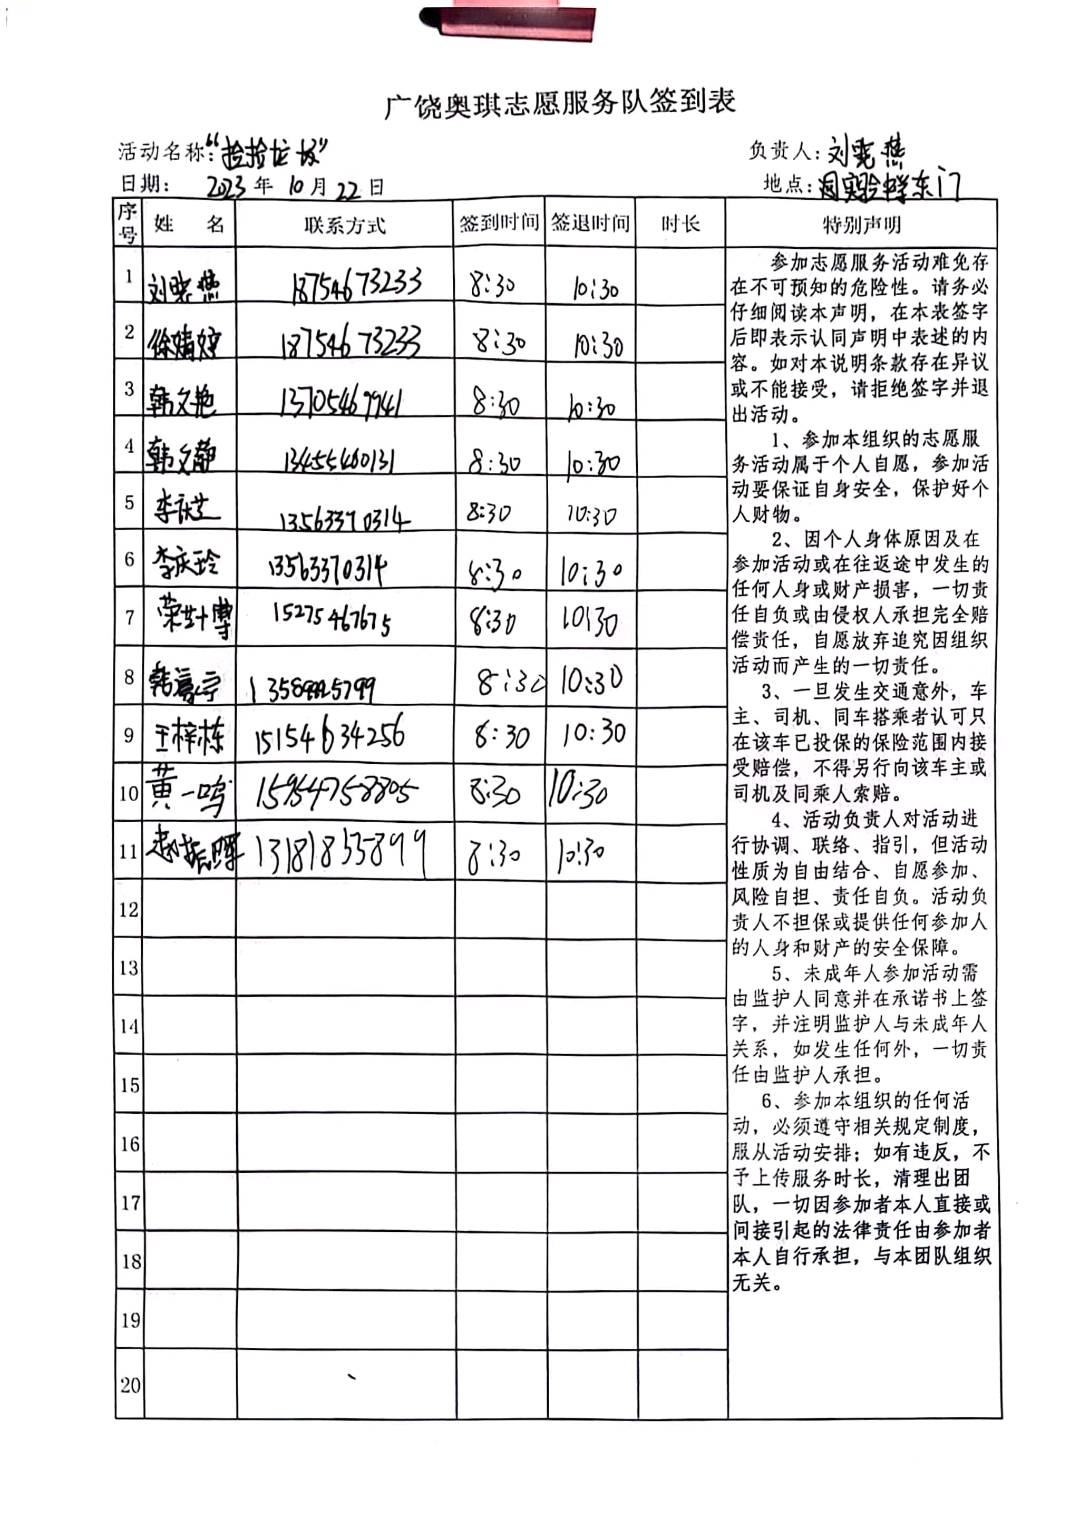 广饶奥琪志愿服务队签到表
活动名称:“捡捡垃圾”
负责人:刘晓燕
日期: 2023年10月22日
地点: 实验中学东门
序号 姓 名 联系方式 签到时间 签退时间 时长 特别声明
1 刘晓燕 18754673233 8:30 10:30
2 徐婧婷 18754673233 8:30 10:30
3 韩文艳 13705467941 8:30 10:30
4 韩文静 13455460131 8:30 10:30
5 李庆芝 13563370314 8:30 10:30
6 李庆玲 13563370314 8:30 10:30
7 荣 15275467675 8:30 10:30
8 韩 宁 8:30 10:30
9 王梓栋 15154634256 8:30 10:30
10 黄一鸣 15954758805 8:30 10:30
11 振晖 13181855899 8:30 10:30
12
13
14
15
16
17
18
19
20
参加志愿服务活动难免存
在不可预知的危险性。请务必
仔细阅读本声明，在本表签字
后即表示认同声明中表述的内
容。如对本说明条款存在异议
或不能接受，请拒绝签字并退
出活动。
1、参加本组织的志愿服
务活动属于个人自愿，参加活
动要保证自身安全，保护好个
人财物。
2、因个人身体原因及在
参加活动或在往返途中发生的
任何人身或财产损害，一切责
任自负或由侵权人承担完全赔
偿责任，自愿放弃追究因组织
活动而产生的一切责任。
3、一旦发生交通意外，车
主、司机、同车搭乘者认可只
在该车已投保的保险范围内接
受赔偿，不得另行向该车主或
司机及同乘人索赔。
4、活动负责人对活动进
行协调、联络、指引，但活动
性质为自由结合、自愿参加、
风险自担、责任自负。活动负
责人不担保或提供任何参加人
的人身和财产的安全保障。
5、未成年人参加活动需
由监护人同意并在承诺书上签
字，并注明监护人与未成年人
关系，如发生任何外，一切责
任由监护人承担。
6、参加本组织的任何活
动，必须遵守相关规定制度，
服从活动安排；如有违反，不
予上传服务时长，清理出团
队，一切因参加者本人直接或
间接引起的法律责任由参加者
本人自行承担，与本团队组织
无关。